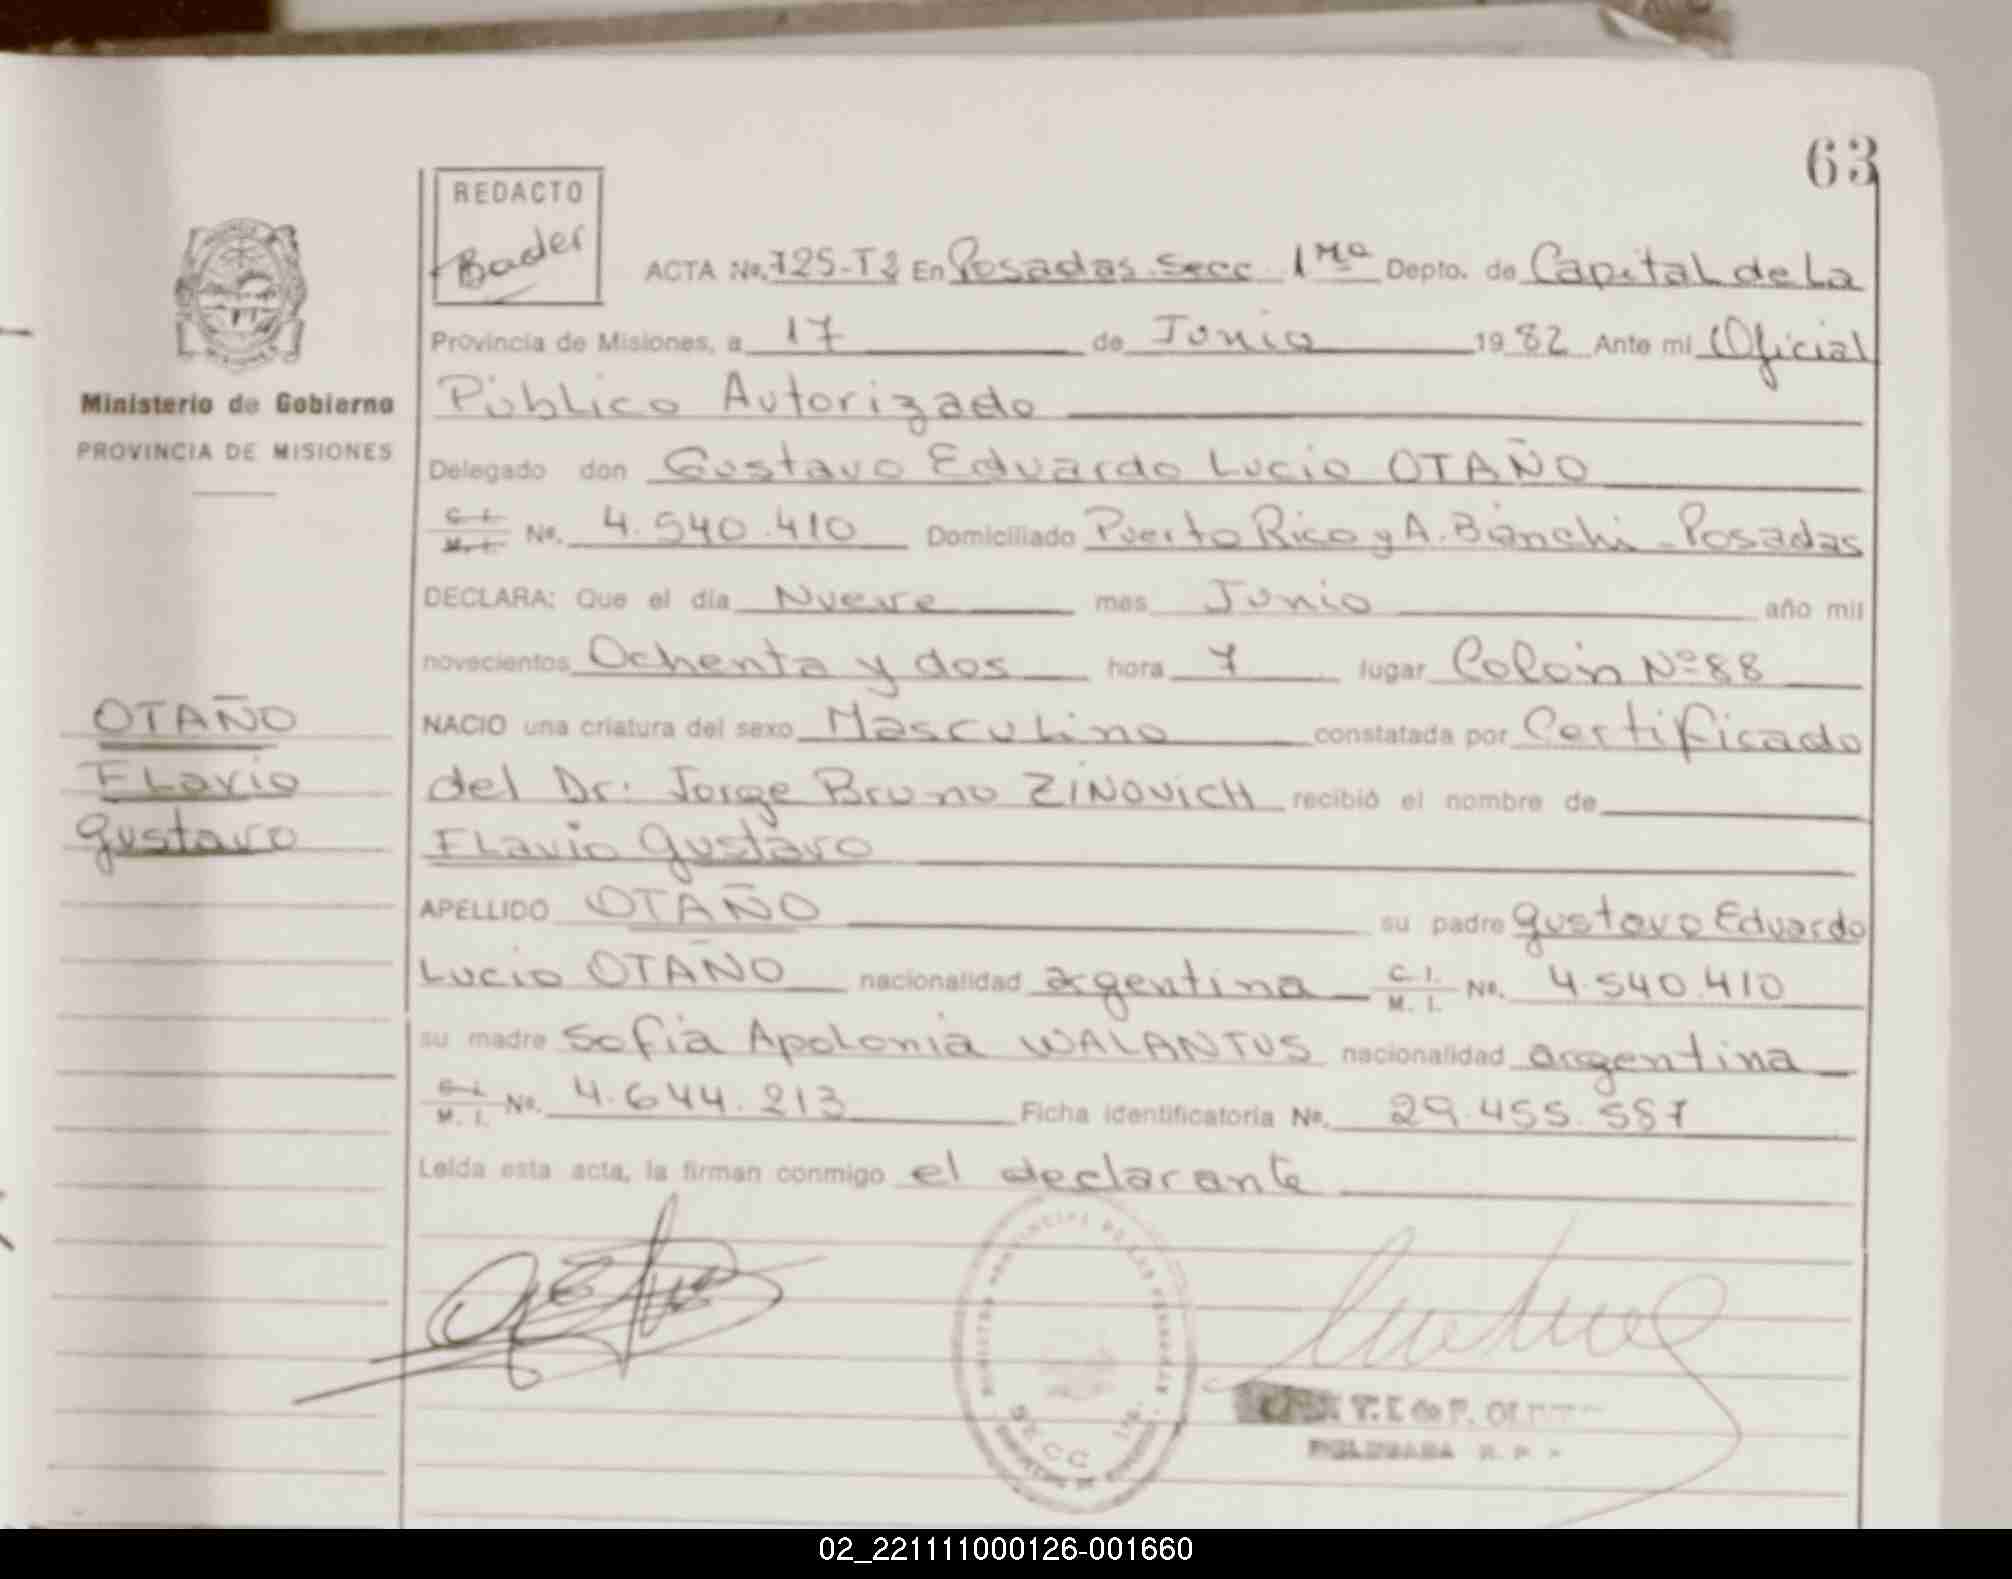 63
REDACTO
Bader
ACTA No. 725-T2 En Posadas Secc. 1ra Depto. de Capital de La
Provincia de Misiones, a 17 de Junio 1982 Ante mi Oficial
Público Autorizado
Delegado don Gustavo Eduardo Lucio OTAÑO
C. I. M. I. No. 4.540.410 Domiciliado Puerto Rico y A. Bianchi - Posadas
DECLARA: Que el día Nueve mes Junio año mil
novecientos Ochenta y dos hora 7 lugar Colón Nº 88
NACIO una criatura del sexo Masculino constatada por Certificado
del Dr. Jorge Bruno ZINOVICH recibió el nombre de
Flavio Gustavo
APELLIDO OTAÑO su padre Gustavo Eduardo
Lucio OTAÑO nacionalidad argentina C. I. M. I. No. 4.540.410
su madre Sofia Apolonia WALANTUS nacionalidad argentina
C. I. M. I. No. 4.644.213 Ficha identificatoria No. 29.455.587
Leída esta acta, la firman conmigo el declarante
Ministerio de Gobierno
PROVINCIA DE MISIONES
OTAÑO
Flavio
Gustavo
REGISTRO PROVINCIAL DE LAS PERSONAS
SECC 1ra.
02_221111000126-001660